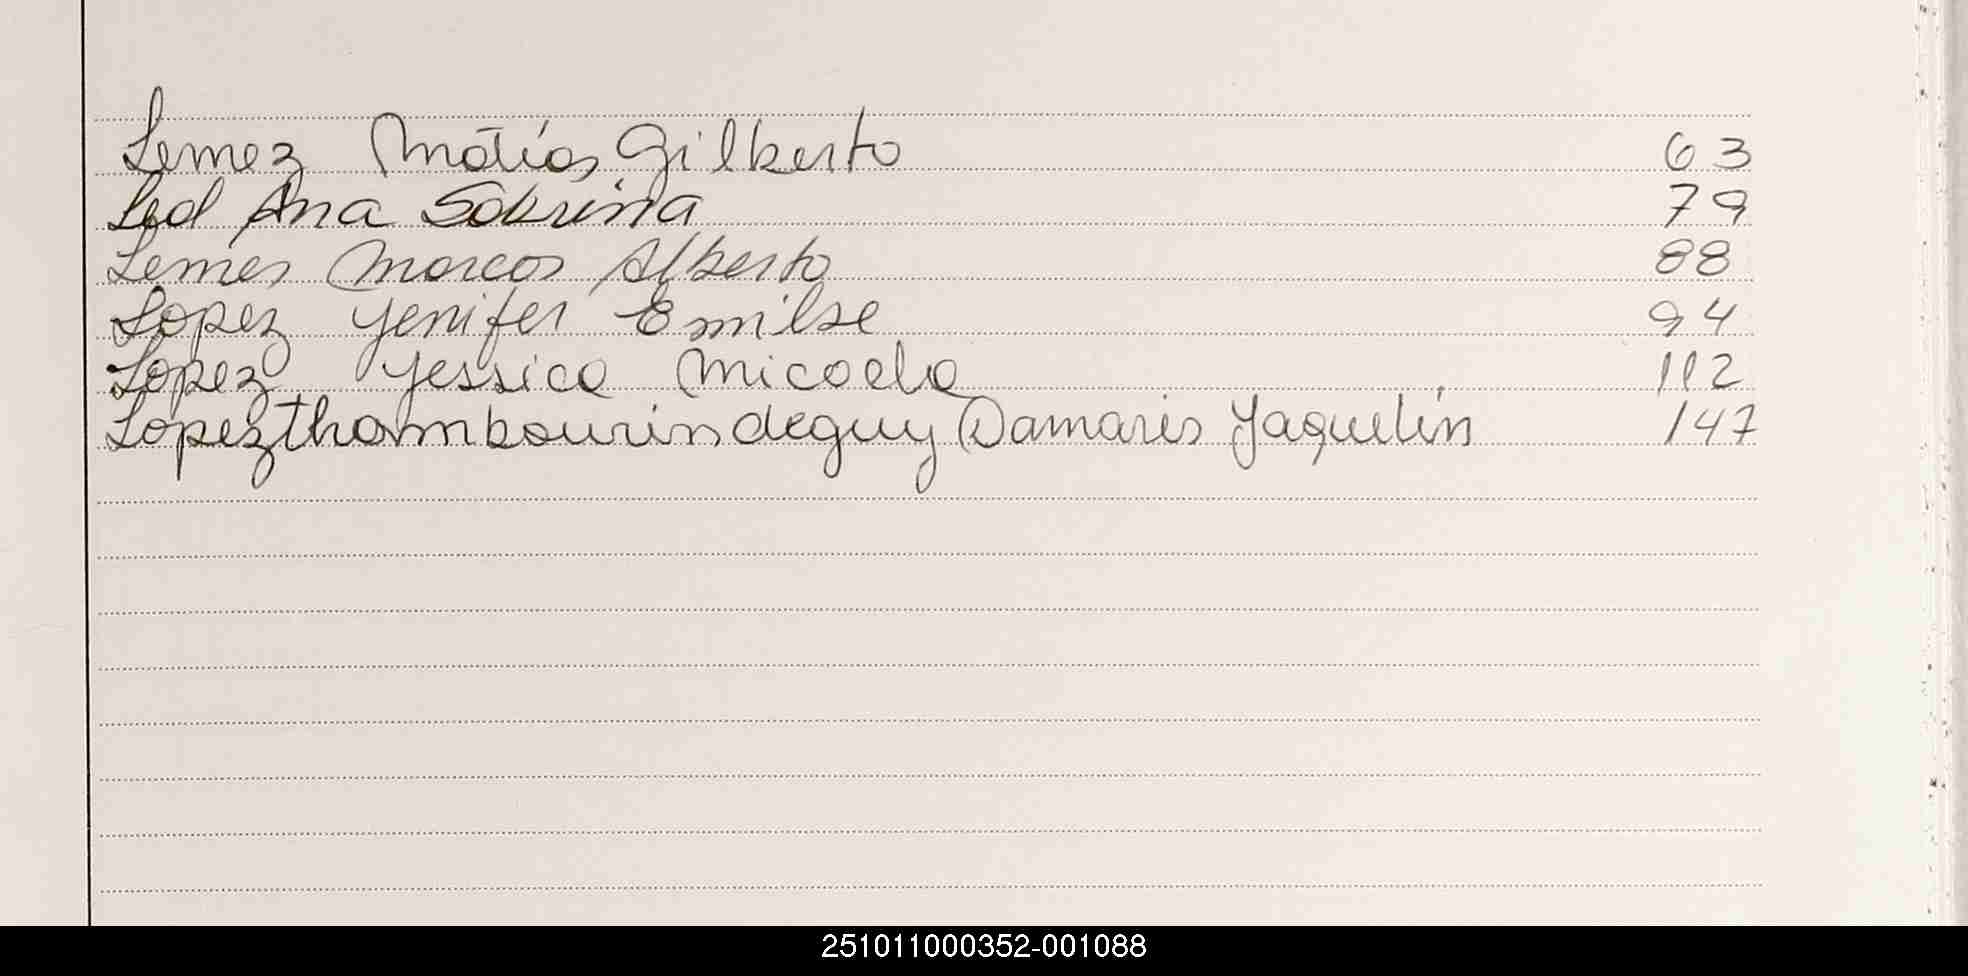 Lemez Matías Gilberto 63
Leal Ana Sabrina 79
Lemes Marcos Alberto 88
Lopez Yenifer Emilse 94
Lopez Yessica Micaela 112
Lopezthambourindeguy Damaris Yaquelín 147
251011000352-001088